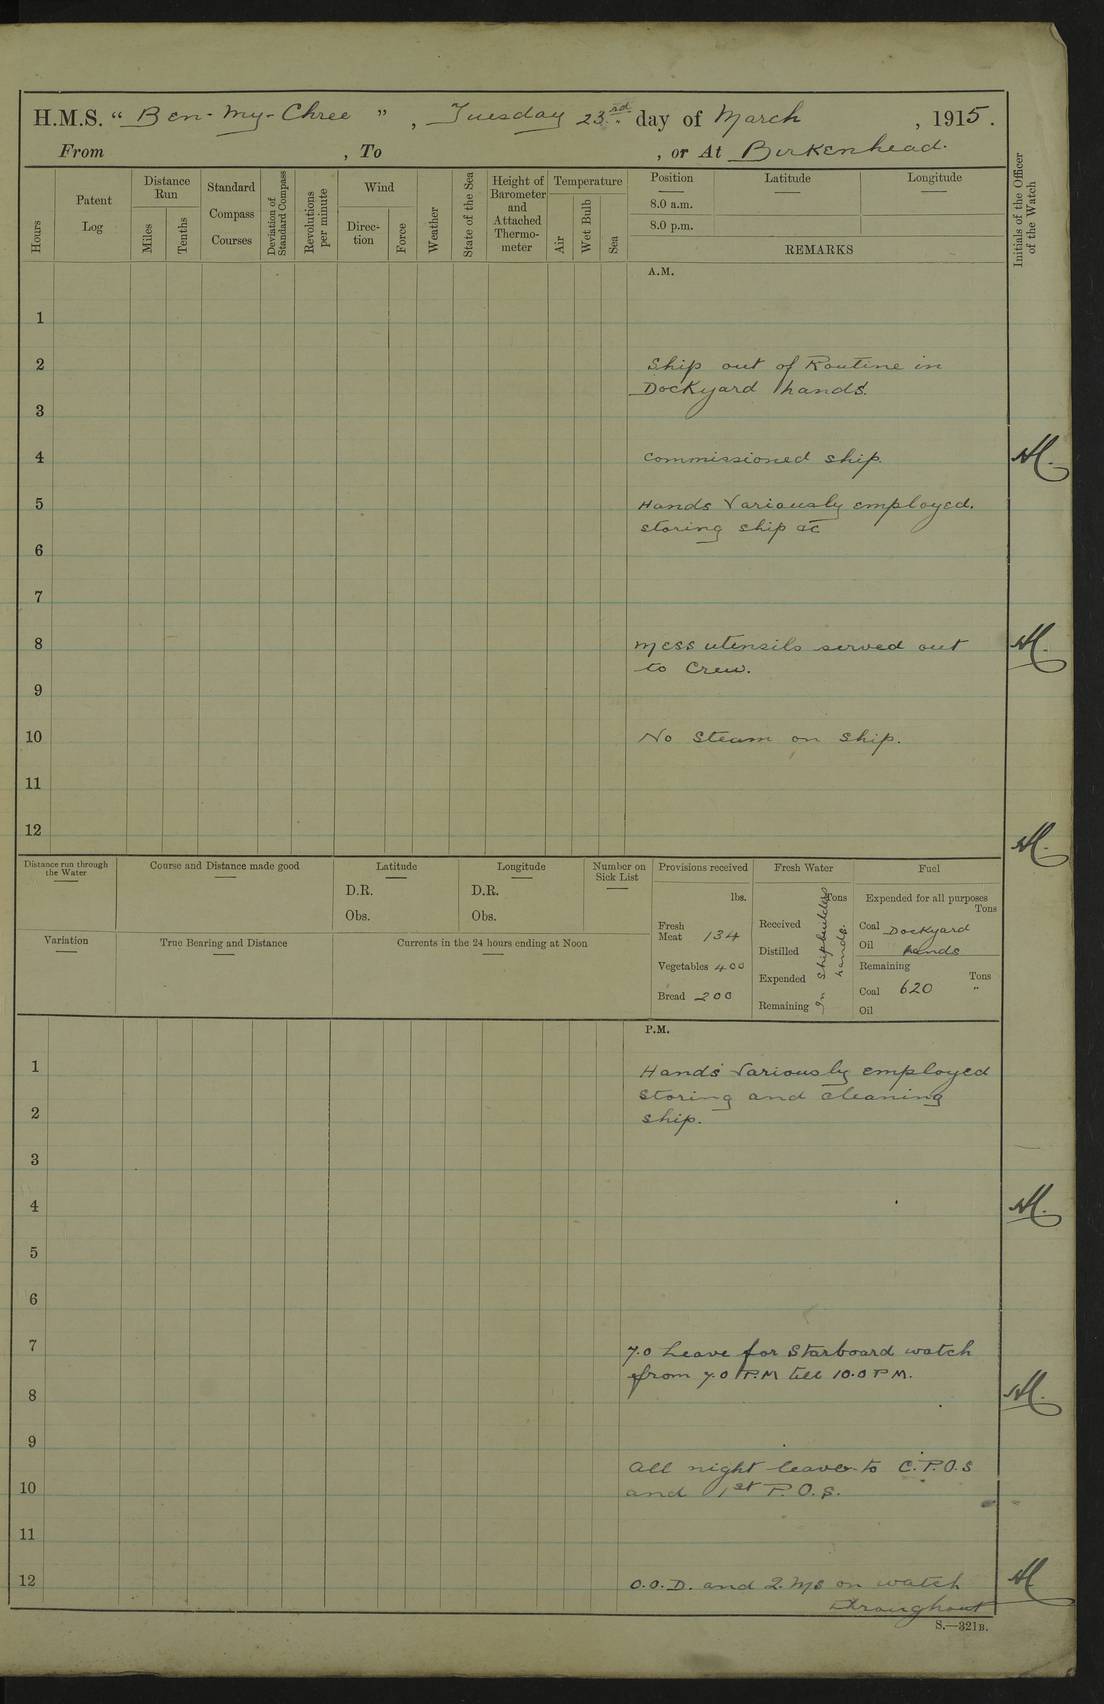 H.M.S. “ Ben-My-Chree ” , Tuesday 23rd. day of March , 1915.
From , To , or At Birkenhead.
Hours
Patent Log
Distance Run
Miles
Tenths
Standard Compass Courses
Deviation of Standard Compass
Revolutions per minute
Wind
Direc-tion
Force
Weather
State of the Sea
Height of Barometer and Attached Thermo-meter
Temperature
Air
Wet Bulb
Sea
Position
8.0 a.m.
8.0 p.m.
Latitude
Longitude
REMARKS
Initials of the Officer of the Watch
A.M.
1
2 Ship out of Routine in
Dockyard hands.
3
4 Commissioned ship.
5 Hands Variously employed.
storing ship &c
6
7
8 Mess utensils served out
to Crew.
9
10 No Steam on Ship.
11
12
Distance run through the Water
Course and Distance made good
Latitude
D.R.
Obs.
Longitude
D.R.
Obs.
Number on Sick List
Provisions received
lbs.
Fresh Meat 134
Vegetables 400
Bread 200
Fresh Water
Tons
Received
Distilled
Expended
Remaining
In Shipbuilders hands.
Fuel
Expended for all purposes
Tons
Coal Dockyard
Oil hands
Remaining
Tons
Coal 620 "
Oil
Variation
True Bearing and Distance
Currents in the 24 hours ending at Noon
P.M.
1 Hands Variously employed
2 Storing and cleaning
ship.
3
4
5
6
7 7.0 Leave for Starboard watch
from 7.0 P.M till 10.0 P.M.
8
9
All night leave to C.P.O.s
10 and 1st P.O.s.
11
12 O.O.D. and Q.Ms on watch
throughout
S.—321B.